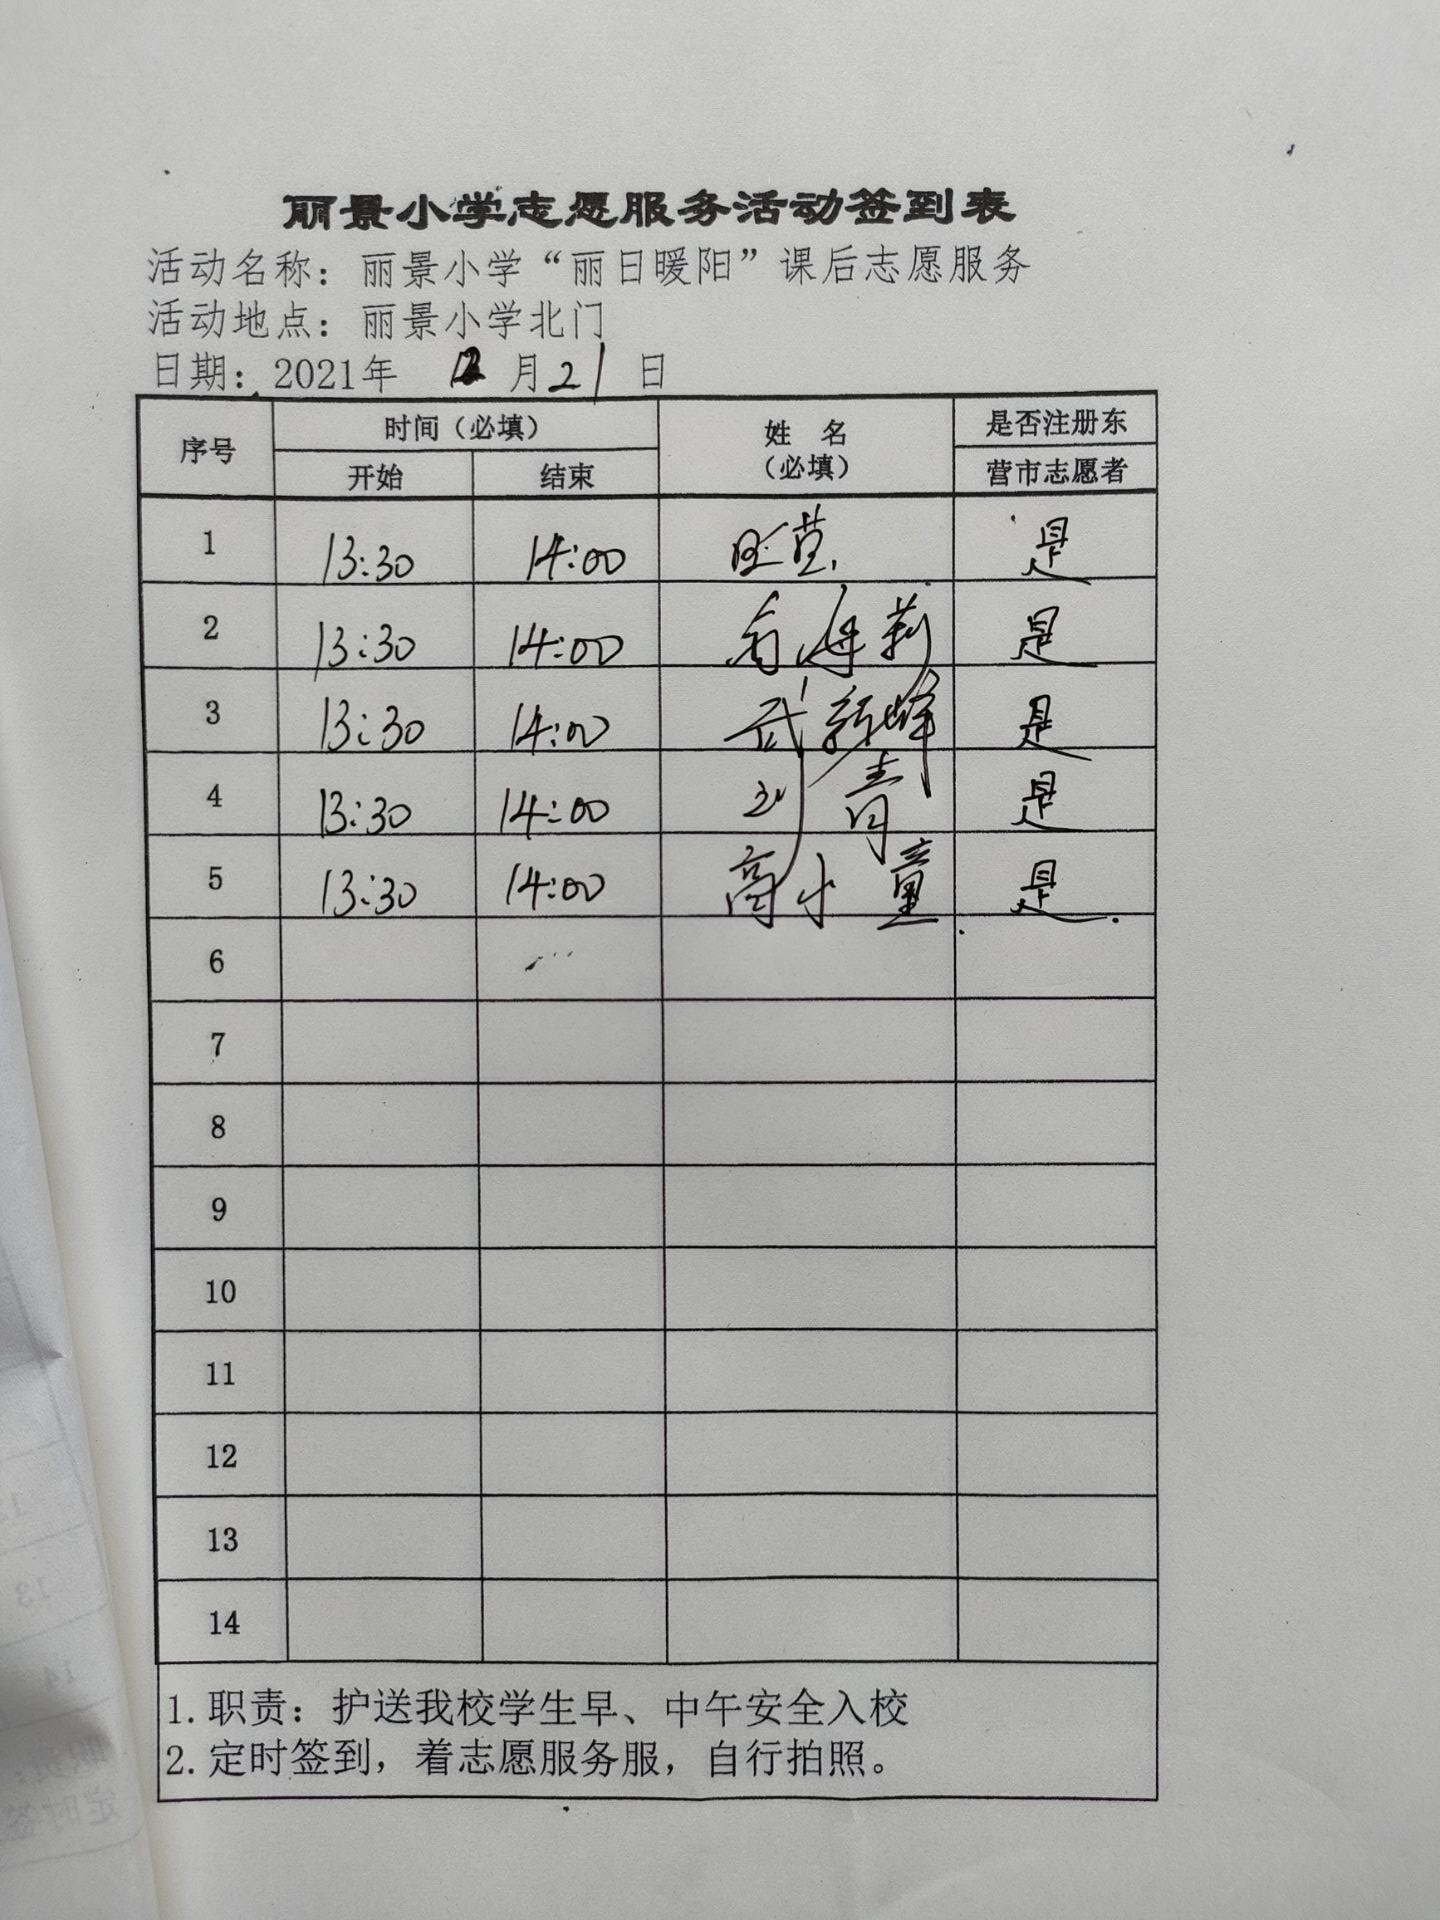 丽景小学志愿服务活动签到表
活动名称：丽景小学“丽日暖阳”课后志愿服务
活动地点：丽景小学北门
日期：2021年 12 月 21 日
序号 时间（必填） 姓 名 是否注册东
开始 结束 （必填） 营市志愿者
1 13:30 14:00 是
2 13:30 14:00 是
3 13:30 14:00 武新峰 是
4 13:30 14:00 青 是
5 13:30 14:00 高小童 是
6
7
8
9
10
11
12
13
14
1.职责：护送我校学生早、中午安全入校
2.定时签到，着志愿服务服，自行拍照。